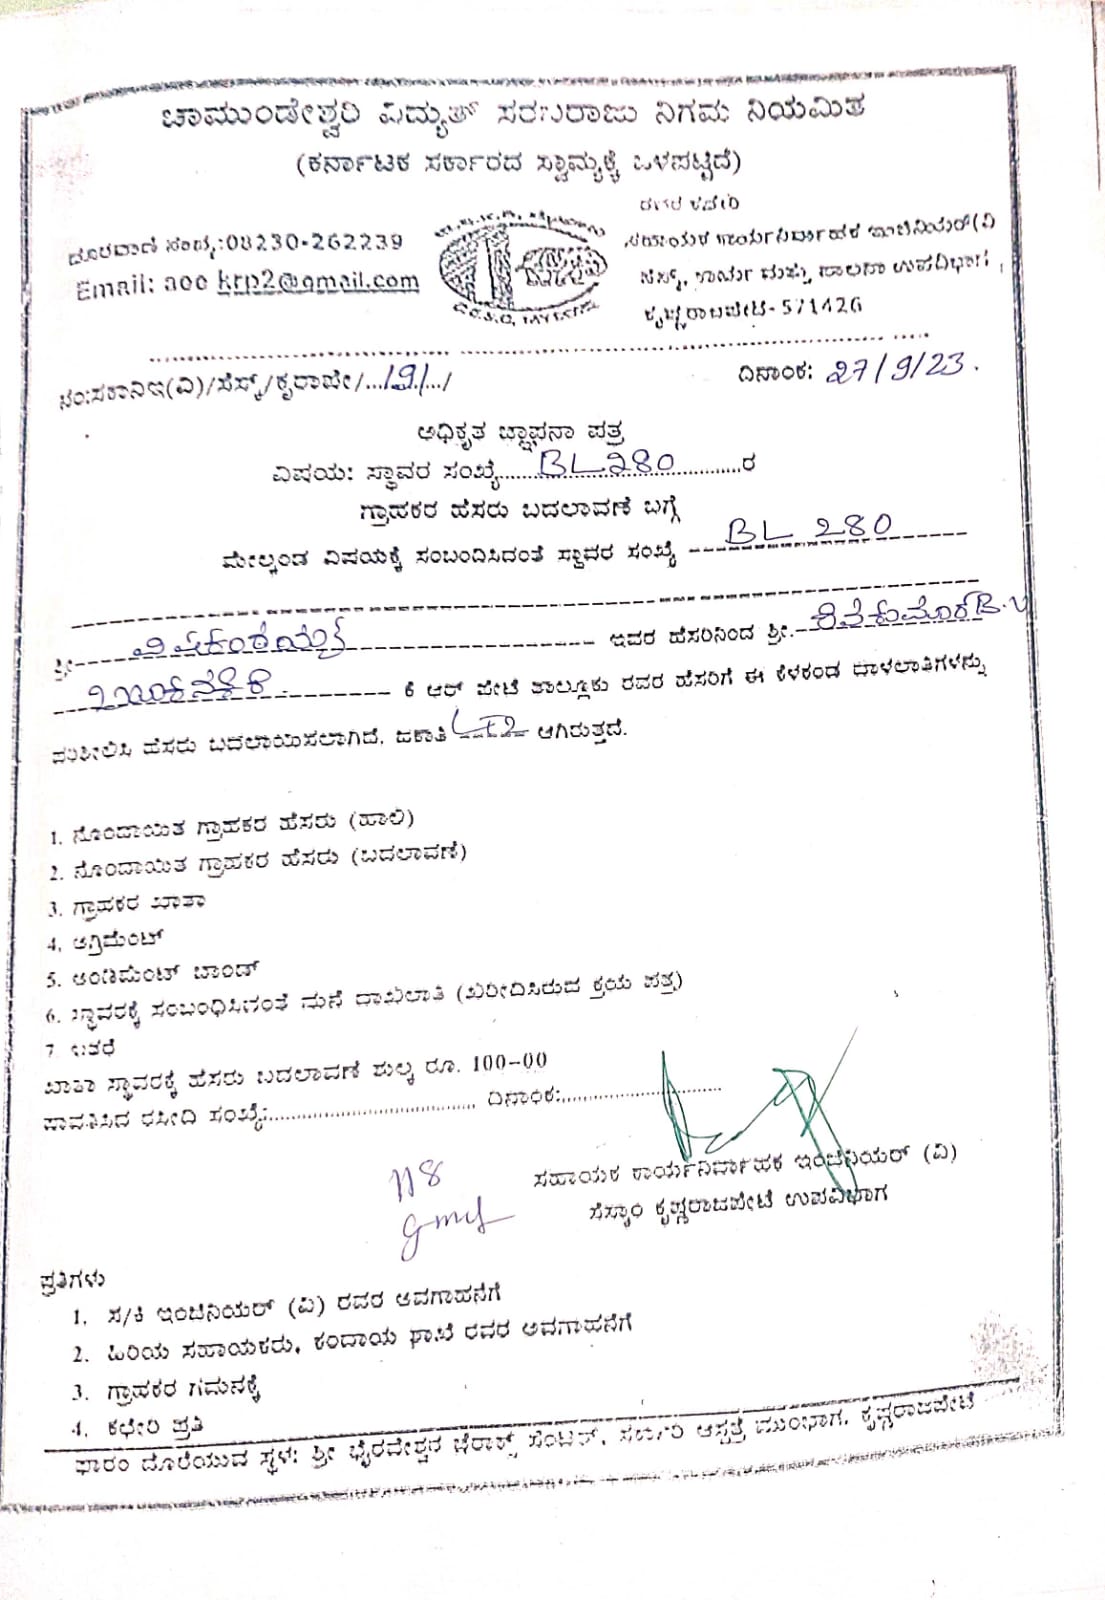 ಚಾಮುಂಡೇಶ್ವರಿ ವಿದ್ಯುತ್ ಸರಬರಾಜು ನಿಗಮ ನಿಯಮಿತ
(ಕರ್ನಾಟಕ ಸರ್ಕಾರದ ಸ್ವಾಮ್ಯಕ್ಕೆ ಒಳಪಟ್ಟಿದೆ)
ದೂರವಾಣಿ ಸಂಖ್ಯೆ:08230-262239
Email: aee krp2@gmail.com
ಸಹಾಯಕ ಕಾರ್ಯನಿರ್ವಾಹಕ ಇಂಜಿನಿಯರ್(ವಿ
ಸೆಸ್ಕ್, ಕಾರ್ಯ ಮತ್ತು ಪಾಲನಾ ಉಪವಿಭಾಗ,
ಕೃಷ್ಣರಾಜಪೇಟೆ-571426
ನಂ:ಸಕಾನಿಇ(ವಿ)/ಸೆಸ್ಕ್/ಕೃರಾಪೇ/...191.../ ದಿನಾಂಕ: 27/9/23.
ಅಧಿಕೃತ ಜ್ಞಾಪನಾ ಪತ್ರ
ವಿಷಯ: ಸ್ಥಾವರ ಸಂಖ್ಯೆ......BL280..........ರ
ಗ್ರಾಹಕರ ಹೆಸರು ಬದಲಾವಣೆ ಬಗ್ಗೆ
ಮೇಲ್ಕಂಡ ವಿಷಯಕ್ಕೆ ಸಂಬಂದಿಸಿದಂತೆ ಸ್ಥಾವರ ಸಂಖ್ಯೆ ---BL 280---
ಶ್ರೀ--- ಇವರ ಹೆಸರಿನಿಂದ ಶ್ರೀ.--- B.V
--- ಕೆ ಆರ್ ಪೇಟೆ ತಾಲ್ಲೂಕು ರವರ ಹೆಸರಿಗೆ ಈ ಕೆಳಕಂಡ ದಾಳಲಾತಿಗಳನ್ನು
ಪರಿಶೀಲಿಸಿ ಹೆಸರು ಬದಲಾಯಿಸಲಾಗಿದೆ, ಜಕಾತಿ LT2 ಆಗಿರುತ್ತದೆ.
1. ನೊಂದಾಯಿತ ಗ್ರಾಹಕರ ಹೆಸರು (ಹಾಲಿ)
2. ನೊಂದಾಯಿತ ಗ್ರಾಹಕರ ಹೆಸರು (ಬದಲಾವಣೆ)
3. ಗ್ರಾಹಕರ ಖಾತಾ
4. ಅಗ್ರಿಮೆಂಟ್
5. ಅಂಡಿಮೆಂಟ್ ಬಾಂಡ್
6. ಸ್ಥಾವರಕ್ಕೆ ಸಂಬಂಧಿಸಿದಂತೆ ಮನೆ ದಾಖಲಾತಿ (ಖರೀದಿಸಿರುವ ಕ್ರಯ ಪತ್ರ)
7. ಇತರೆ
ಖಾತಾ ಸ್ಥಾವರಕ್ಕೆ ಹೆಸರು ಬದಲಾವಣೆ ಶುಲ್ಕ ರೂ. 100-00
ಪಾವತಿಸಿದ ರಸೀದಿ ಸಂಖ್ಯೆ:............ ದಿನಾಂಕ:............
118
ಸಹಾಯಕ ಕಾರ್ಯನಿರ್ವಾಹಕ ಇಂಜಿನಿಯರ್ (ವಿ)
ಸೆಸ್ಕಾಂ ಕೃಷ್ಣರಾಜಪೇಟೆ ಉಪವಿಭಾಗ
ಪ್ರತಿಗಳು
1. ಸ/ಕಿ ಇಂಜಿನಿಯರ್ (ವಿ) ರವರ ಅವಗಾಹನೆಗೆ
2. ಹಿರಿಯ ಸಹಾಯಕರು, ಕಂದಾಯ ಶಾಖೆ ರವರ ಅವಗಾಹನೆಗೆ
3. ಗ್ರಾಹಕರ ಗಮನಕ್ಕೆ
4. ಕಛೇರಿ ಪ್ರತಿ
ಫಾರಂ ದೊರೆಯುವ ಸ್ಥಳ: ಶ್ರೀ ಭೈರವೇಶ್ವರ ಜೆರಾಕ್ಸ್ ಸೆಂಟರ್, ಸರ್ಕಾರಿ ಆಸ್ಪತ್ರೆ ಮುಂಭಾಗ, ಕೃಷ್ಣರಾಜಪೇಟೆ